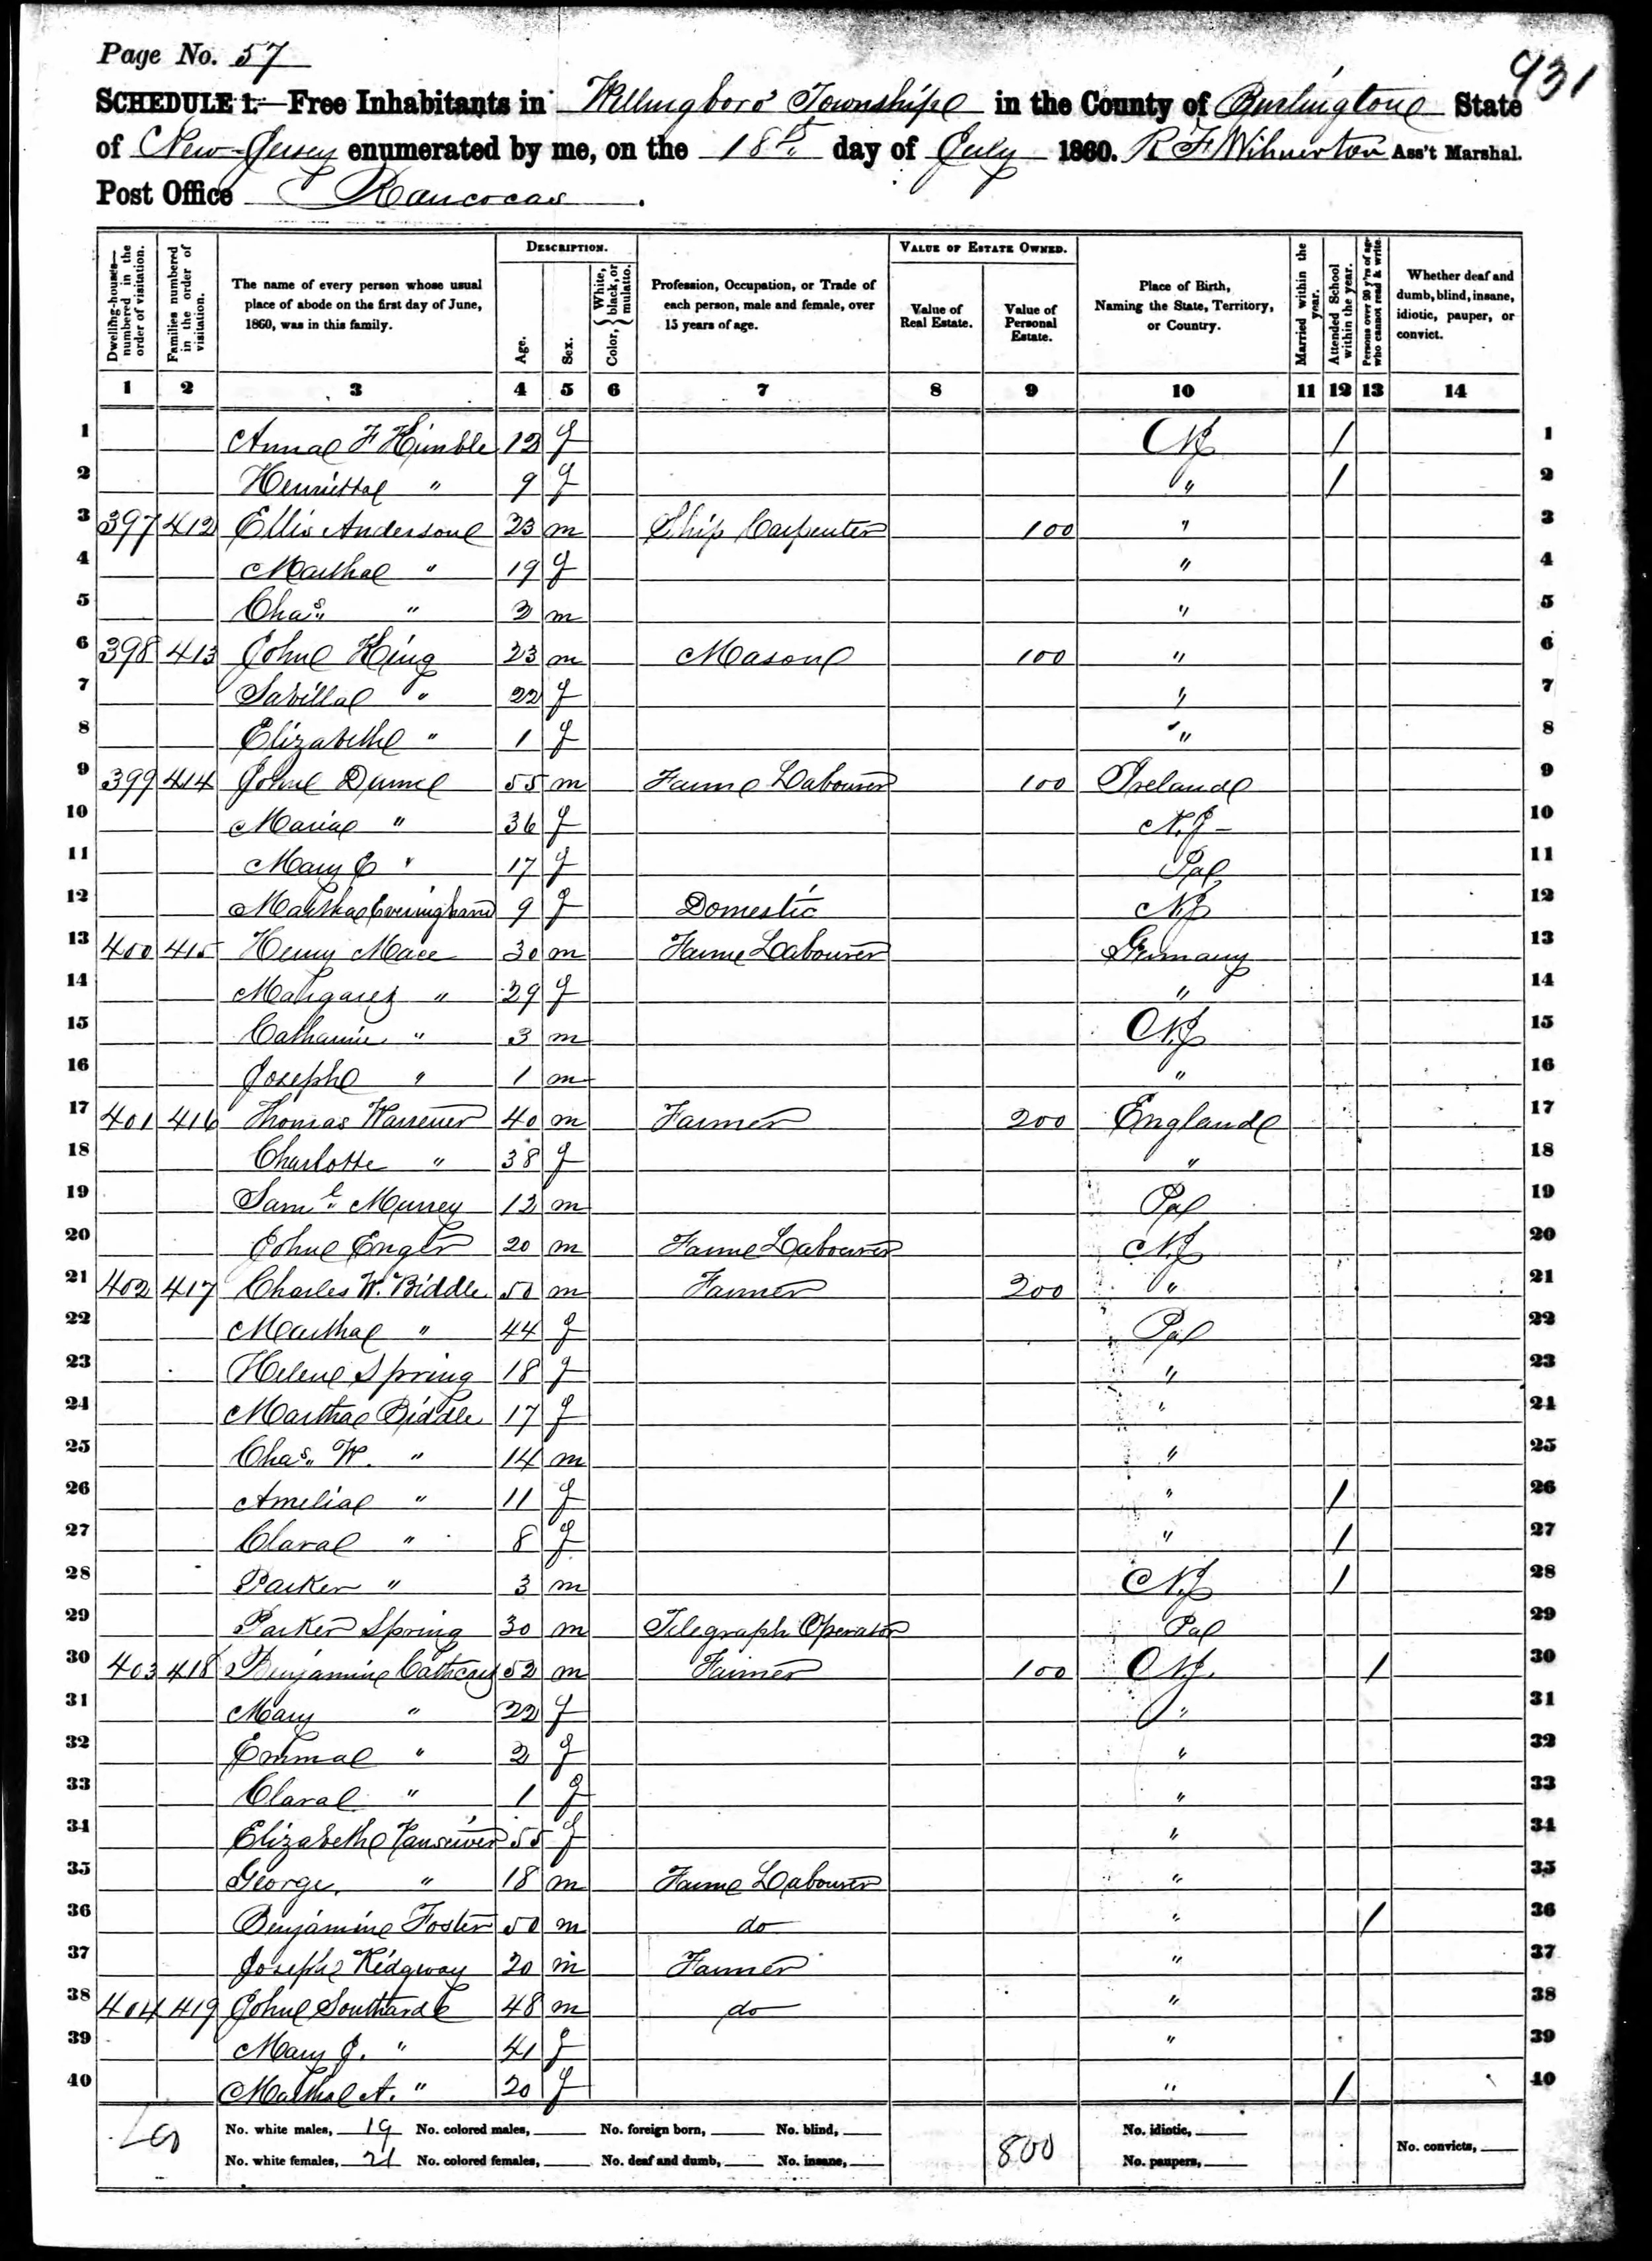 Page No. 57
931
SCHEDULE 1.—Free Inhabitants in Willingboro Township in the County of Burlington State
of New Jersey enumerated by me, on the 18th day of July 1860. Ass't Marshal.
Post Office Rancocas.
Dwelling-houses—numbered in the order of visitation.
Families numbered in the order of visitation.
The name of every person whose usual place of abode on the first day of June, 1860, was in this family.
DESCRIPTION.
Age.
Sex.
Color, { White, black, or mulatto.
Profession, Occupation, or Trade of each person, male and female, over 15 years of age.
VALUE OF ESTATE OWNED.
Value of Real Estate.
Value of Personal Estate.
Place of Birth, Naming the State, Territory, or Country.
Married within the year.
Attended School within the year.
Persons over 20 y'rs of age who cannot read & write.
Whether deaf and dumb, blind, insane, idiotic, pauper, or convict.
1 2 3 4 5 6 7 8 9 10 11 12 13 14
1 Anna F Kimble 12 f NJ / 1
2 Henrietta " 9 f " / 2
3 397 412 Ellis Anderson 23 m Ship Carpenter 100 " 3
4 Martha " 19 f " 4
5 Chas. " 2 m " 5
6 398 413 John King 23 m Mason 100 " 6
7 Savilla " 22 f " 7
8 Elizabeth " 1 f " 8
9 399 414 John Dunn 55 m Farm Labourer 100 Ireland 9
10 Maria " 36 f N.J 10
11 Mary E " 17 f Pa 11
12 Martha Everingham 9 f Domestic NJ 12
13 400 415 Henry Mace 30 m Farm Labourer Germany 13
14 Margaret " 29 f " 14
15 Catharine " 3 m NJ 15
16 Joseph " 1 m " 16
17 401 416 Thomas Warrener 40 m Farmer 200 England 17
18 Charlotte " 38 f " 18
19 Saml. Murrey 12 m Pa 19
20 John Engle 20 m Farm Labourer NJ 20
21 402 417 Charles W. Biddle 50 m Farmer 200 " 21
22 Martha " 44 f Pa 22
23 Helen Spring 18 f " 23
24 Martha Biddle 17 f " 24
25 Chas. W. " 14 m " 25
26 Amelia " 11 f " / 26
27 Clara " 8 f " / 27
28 Parker " 3 m NJ / 28
29 Parker Spring 30 m Telegraph Operator Pa 29
30 403 418 Benjamin Cathcart 52 m Farmer 100 NJ. / 30
31 Mary " 22 f " 31
32 Emma " 2 f " 32
33 Clara " 1 f " 33
34 Elizabeth 55 f " 34
35 George " 18 m Farm Labourer " 35
36 Benjamin Foster 50 m do " / 36
37 Joseph Ridgway 20 m Farmer " 37
38 404 419 John Southard 48 m do " 38
39 Mary J. " 41 f " 39
40 Martha A. " 20 f " / 40
No. white males, 19 No. colored males, No. foreign born, No. blind, No. idiotic,
800
No. convicts,
No. white females, 21 No. colored females, No. deaf and dumb, No. insane, No. paupers,